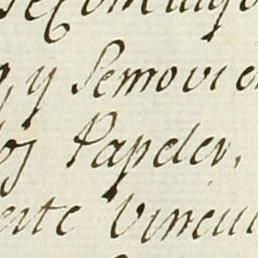 y Semovie
los Papeles,
ente Vincul